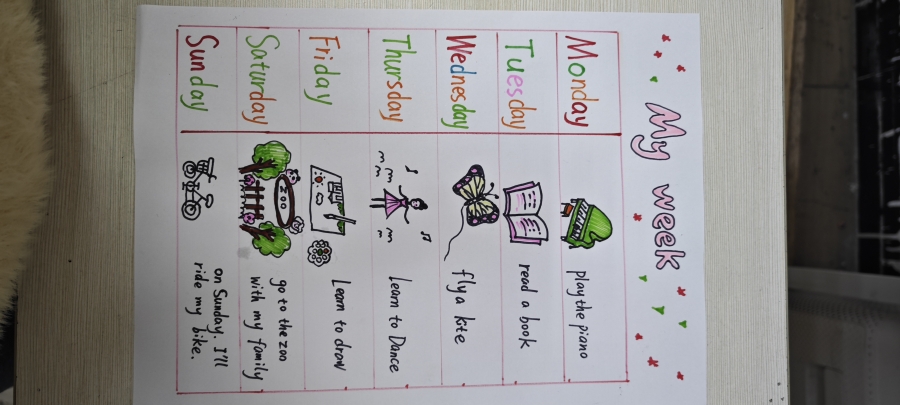 My week
Monday
play the piano
Tuesday
read a book
Wednesday
fly a kite
Thursday
learn to Dance
Friday
learn to draw
Saturday
ZOO
go to the zoo
with my family
Sunday
on Sunday. I'll
ride my bike.